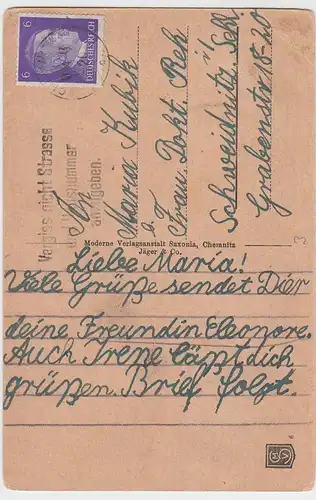 6 DEUTSCHES REICH 6
Vergiss nicht Strasse
und Hausnummer
anzugeben.
An
Maria Kubik
b. Frau Dokt. Reh
Schweidnitz i. Schl.
Grabenstr 18-20
Moderne Verlagsanstalt Saxonia, Chemnitz
Jäger & Co.
Liebe Maria!
Viele Grüße sendet Dier
deine Freundin Eleonore.
Auch Irene läßt dich
grüßen. Brief folgt.